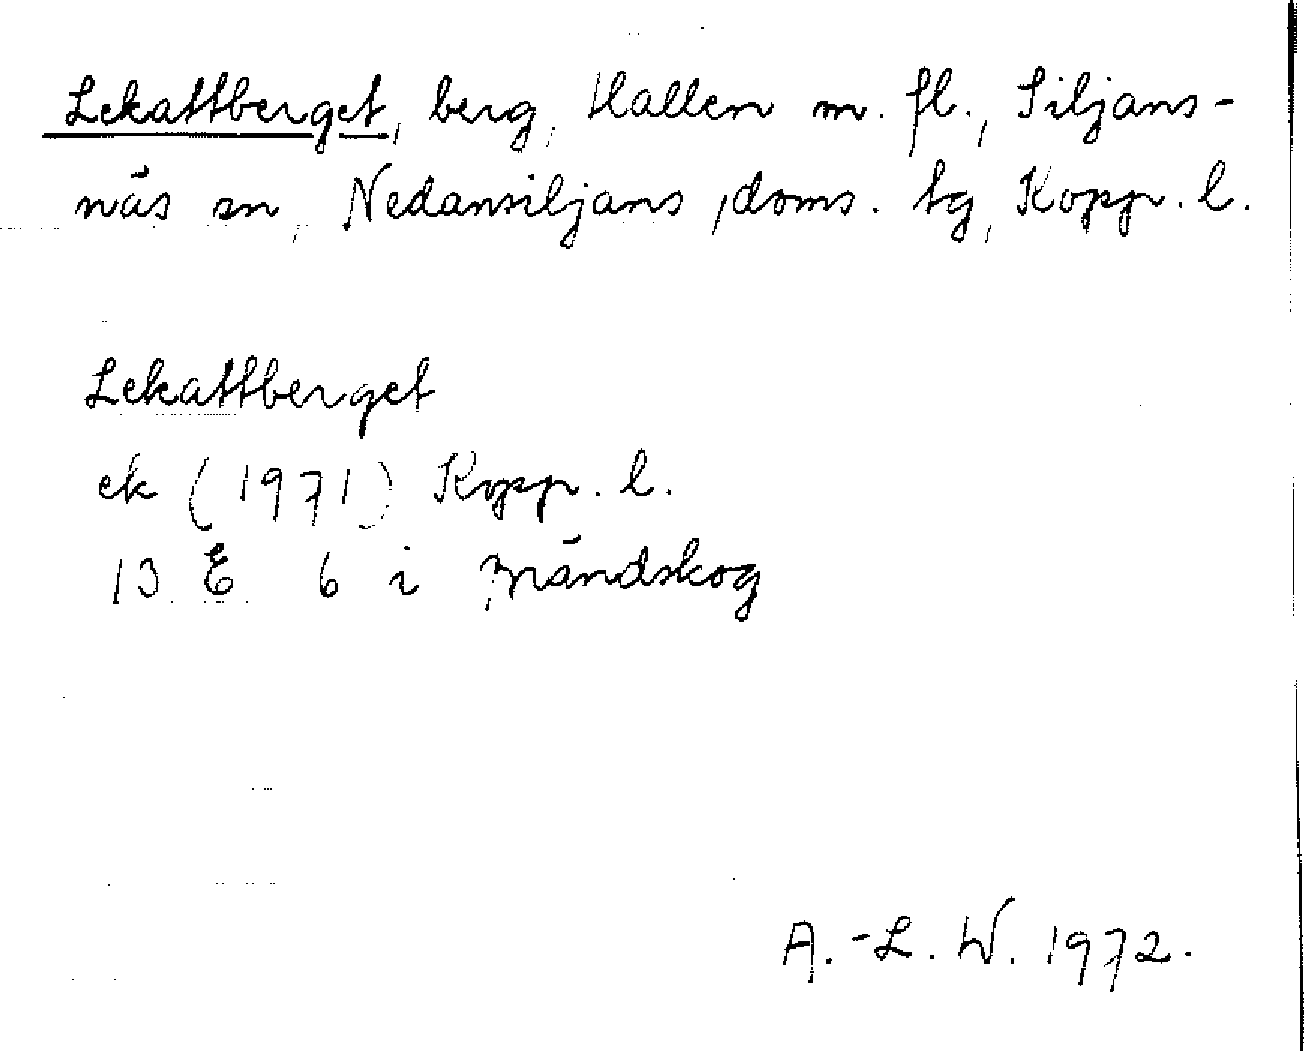 Lekattberget, berg, Hallen m. fl., Siljans-
näs sn, Nedansiljans doms. tg, Kopp. l.
Lekattberget
ek (1971) Kopp. l.
13 E 6 i Brändskog
A.-L. W. 1972.